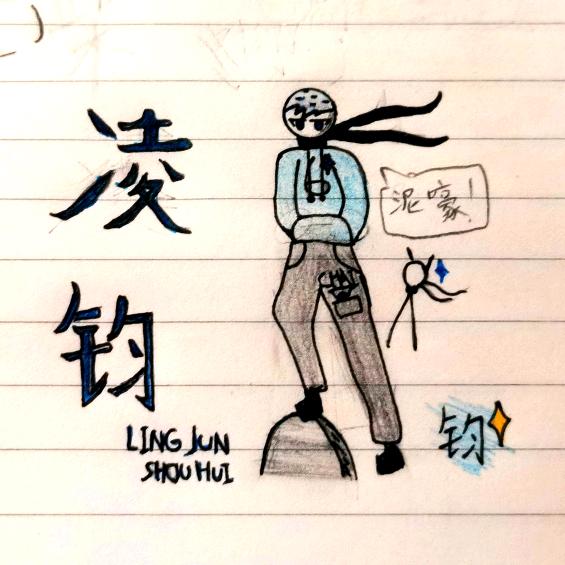 凌
钧
LING JUN
SHOU HUI
泥嚎！
钧